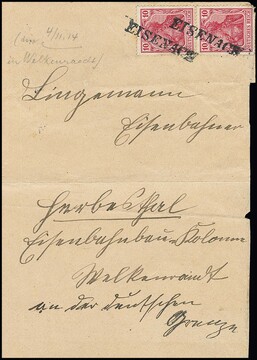 4/11.14
in Welkenraedt)
10 10
EISENACH EISENACH
Lingemann
Eisenbahner
Herbesthal
Eisenbahnbau-Kolonne
Welkenraedt
an der deutschen
Grenze